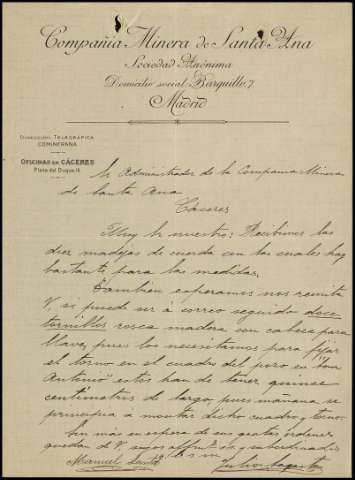 Compañía Minera de Santa Ana
Sociedad Anónima
Domicilio social, Barquillo, 7
Madrid
DIRECCIÓN TELEGRÁFICA
COMINERANA
OFICINAS EN CÁCERES
Plata del Duque, 11
Sr Administrador de la Compania Minera
de Santa Ana
Cáceres
Muy Sr nuestro: Recibimos las
diez madejas de cuerda con las cuales hay
bastante para las medidas.
Tambien esperamos nos remita
V, si puede ser á correo seguido doce
tornillos rosca madera con cabeza para
llave, pues los necesitamos para fijar
el torno en el cuadro del pozo en "San
Antonio" estos han de tener quince
centimetros de largo, pues mañana se
principia a montar dicho cuadro y torno.
Sin más en espera de sus gratas ordenes
quedan de V. suyos affmos y subordinados
q. b. s. m.
Manuel Julio